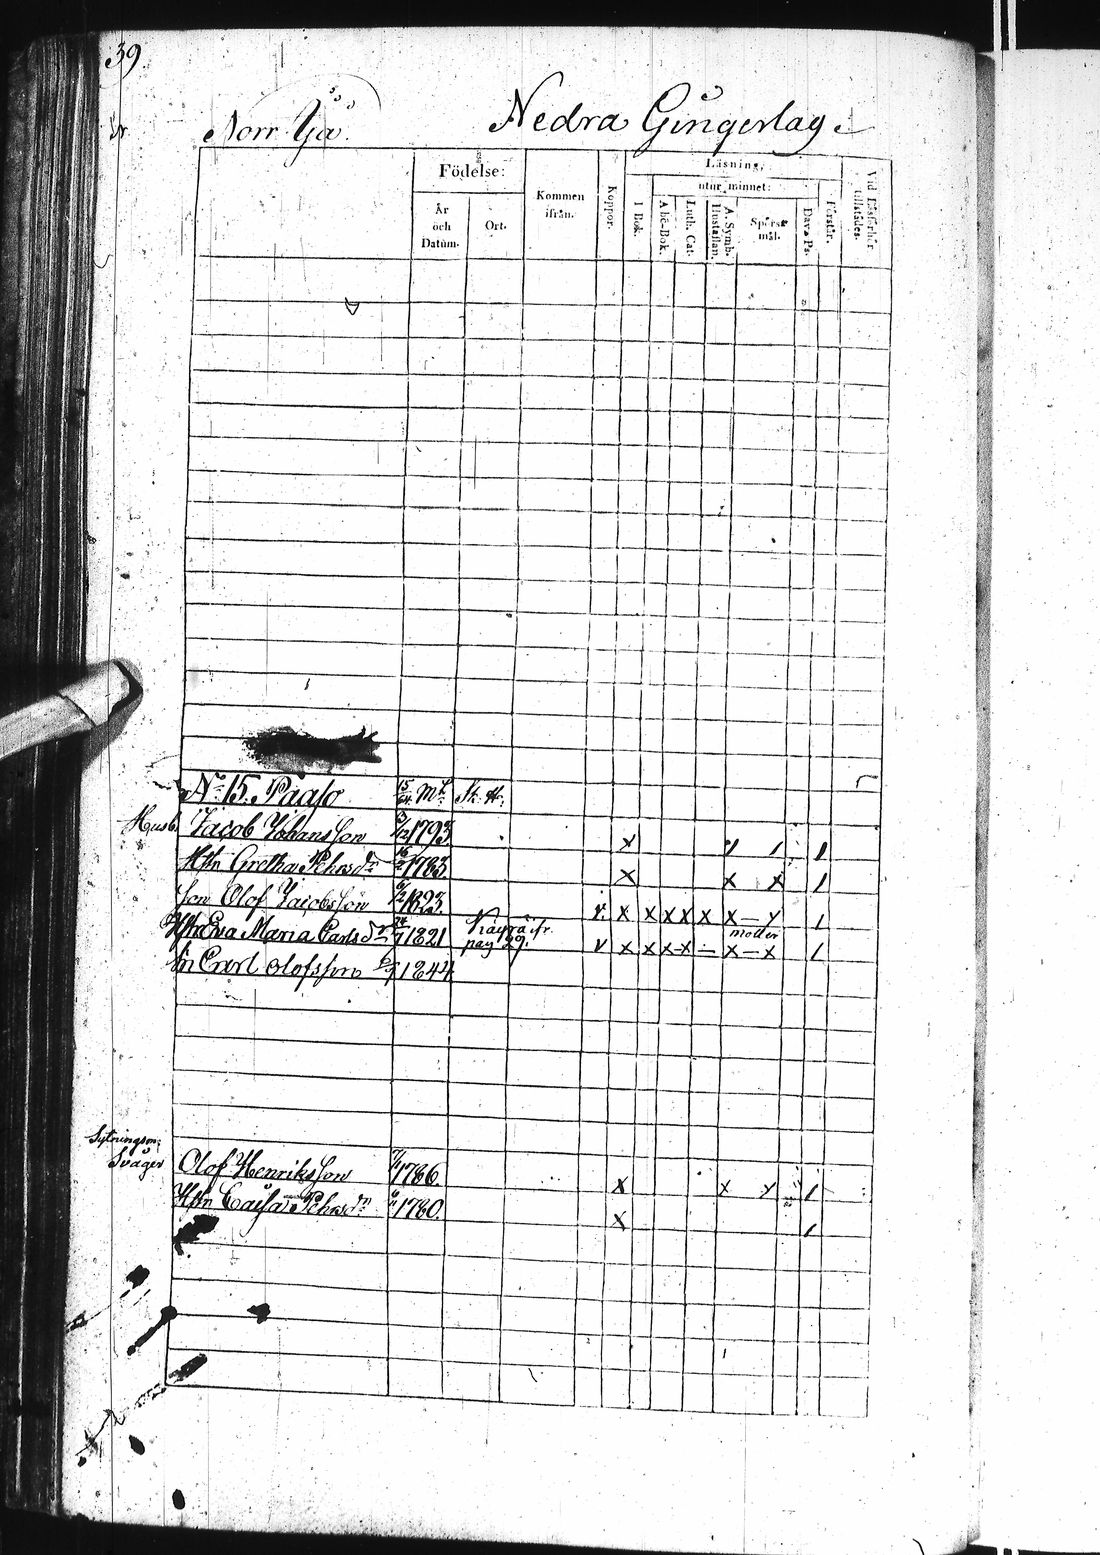 39
Norr Yå. Nedra Gungerlag.
Födelse:
År och Datum.
Ort.
Kommen ifrån.
Koppor.
Läsning,
utur minnet:
I Bok.
Abc-Bok.
Luth. Cat.
A. Symb. Hustaflan.
Spörsmål.
Dav. Ps.
Förstår.
Vid Läsförhör tillstädes.
No 15. Pååso 15/64 Mtl
Husb. Jacob Johansson 3/12 1793. x 1
Hstn Gretha Pehrsdr 1783. x x x 1
Son Olof Jacobsson 1823. v. x x x x x x — y 1
Hstn Eva Maria Carlsdr 1821 ifr. pag 29. v x x x x — x — x 1
moder
Carl Olofsson 1844.
Sytningsm.
Svåger Olof Henriksson 1786. x x y 1
Hstn Caisa Pehrsdr 1780. x 1